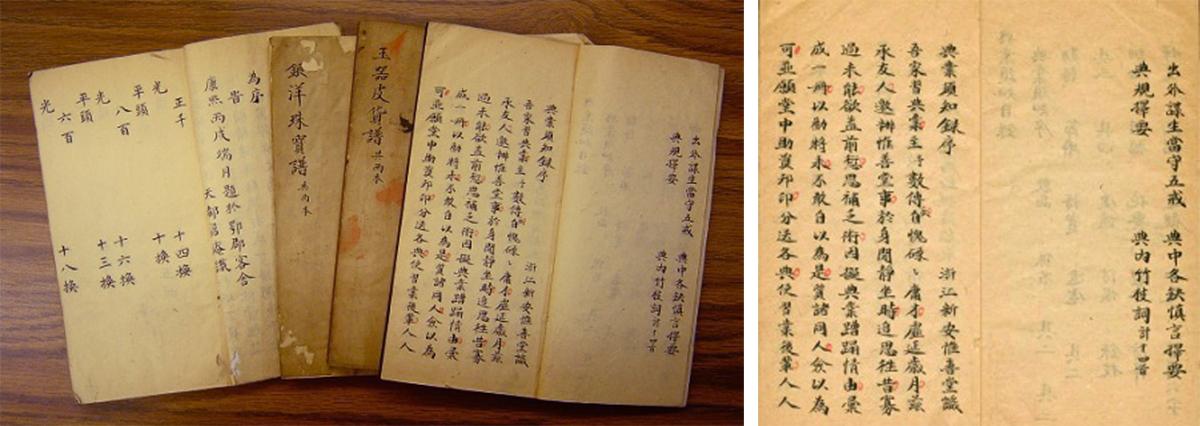 出外謀生當守五戒 典中各缺慎言擇要
典規擇要 典內竹枝詞 計十四首
典業須知錄序 浙江新安惟善堂識
吾家習典業至予數傳自愧碌〻庸才虛延歲月茲
承友人邀辦惟善堂事於身閒靜坐時追思往昔寡
過未能欲蓋前愆思補乏術因擬典業蹭蹋情由彙
成一冊以勸將來不敢自以為是質諸同人僉以為
可並願堂中助資刊印分送各典使習業後輩人人
玉器皮貨譜 共兩本
銀洋珠寶譜 共兩本
為序
旹
康熙丙戌端月題於鄂郡客舍
天都 庵識
正千 十四換
光 十換
平頭 八百 十六換
平頭 十三換
光 六百 十八換
出外謀生當守五戒 典中各缺慎言擇要
典規擇要 典內竹枝詞 計十四首
典業須知錄序 浙江新安惟善堂識
吾家習典業至予數傳自愧碌〻庸才虛延歲月茲
承友人邀辦惟善堂事於身閒靜坐時追思往昔寡
過未能欲蓋前愆思補乏術因擬典業蹭蹋情由彙
成一冊以勸將來不敢自以為是質諸同人僉以為
可並願堂中助資刊印分送各典使習業後輩人人